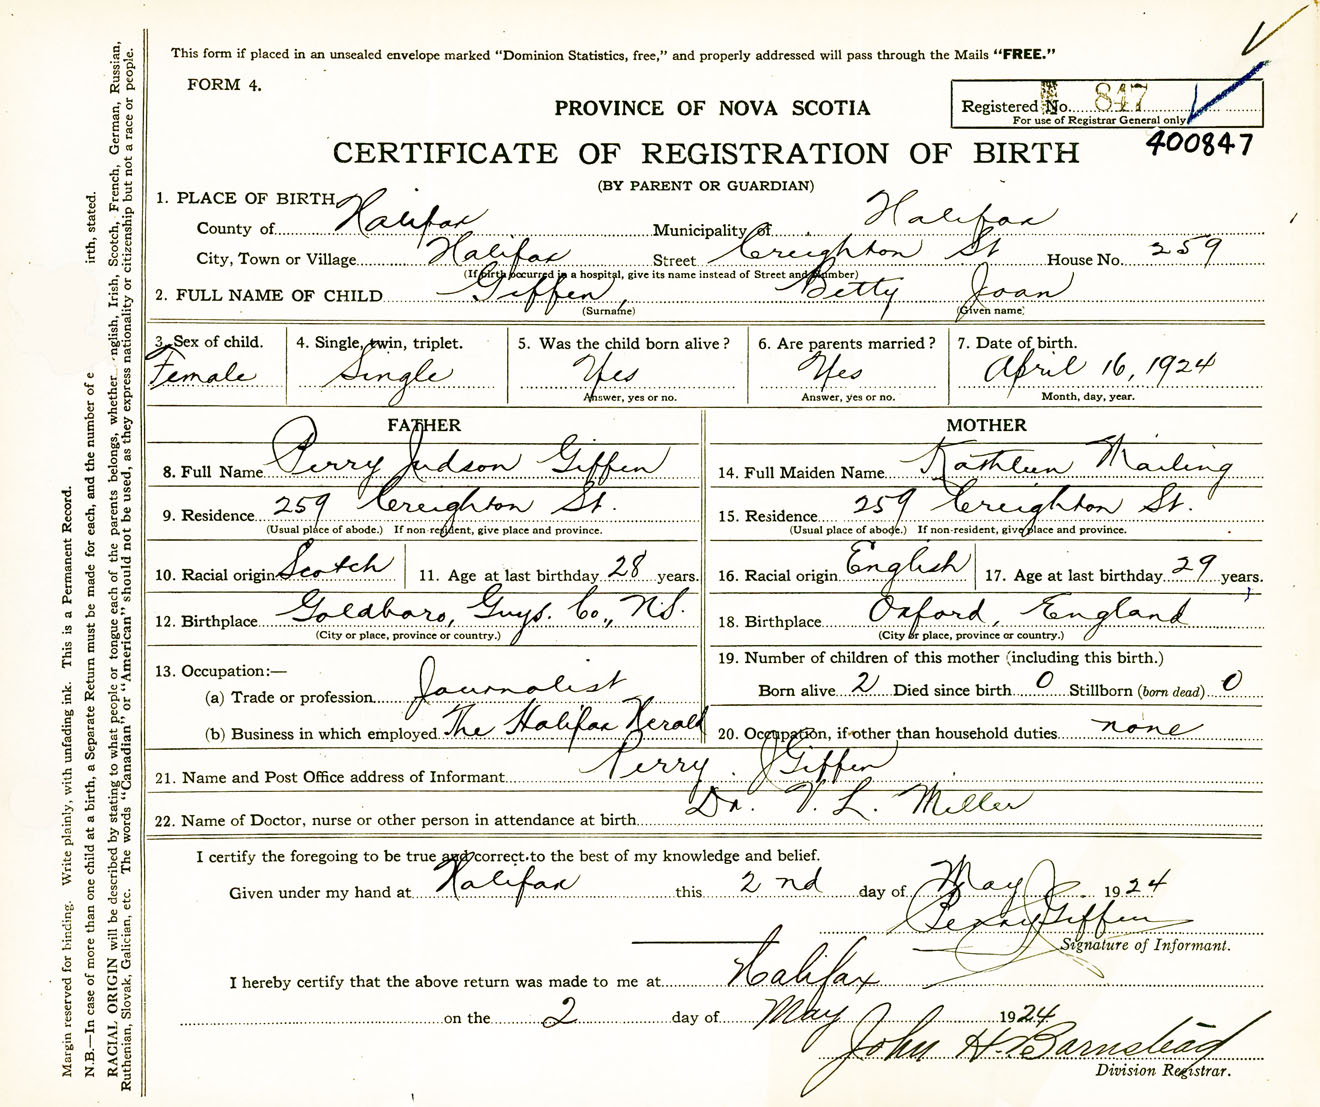 This form if placed in an unsealed envelope marked “Dominion Statistics, free,” and properly addressed will pass through the Mails “FREE.”
FORM 4.
PROVINCE OF NOVA SCOTIA
Registered No. 847
For use of Registrar General only
400847
CERTIFICATE OF REGISTRATION OF BIRTH
(BY PARENT OR GUARDIAN)
1. PLACE OF BIRTH
County of Halifax Municipality of Halifax
City, Town or Village Halifax Street Creighton St House No. 259
(If birth occurred in a hospital, give its name instead of Street and Number)
2. FULL NAME OF CHILD Giffen, Betty Joan
(Surname) (Given name)
3. Sex of child. 4. Single, twin, triplet. 5. Was the child born alive? 6. Are parents married? 7. Date of birth.
Female Single Yes Yes April 16, 1924
Answer, yes or no. Answer, yes or no. Month, day, year.
FATHER
8. Full Name Perry Judson Giffen
9. Residence 259 Creighton St.
(Usual place of abode.) If non-resident, give place and province.
10. Racial origin Scotch 11. Age at last birthday 28 years.
12. Birthplace Goldboro, Guys. Co., N.S.
(City or place, province or country.)
13. Occupation:—
(a) Trade or profession Journalist
(b) Business in which employed The Halifax Herald
MOTHER
14. Full Maiden Name Kathleen Mailing
15. Residence 259 Creighton St.
(Usual place of abode.) If non-resident, give place and province.
16. Racial origin English 17. Age at last birthday 29 years.
18. Birthplace Oxford, England
(City or place, province or country.)
19. Number of children of this mother (including this birth.)
Born alive 2 Died since birth 0 Stillborn (born dead) 0
20. Occupation, if other than household duties none
21. Name and Post Office address of Informant Perry J Giffen
22. Name of Doctor, nurse or other person in attendance at birth Dr. V. L. Miller
I certify the foregoing to be true and correct to the best of my knowledge and belief.
Given under my hand at Halifax this 2nd day of May 1924
Perry J Giffen
Signature of Informant.
I hereby certify that the above return was made to me at Halifax
on the 2 day of May 1924
John H. Barnstead
Division Registrar.
Margin reserved for binding. Write plainly, with unfading ink. This is a Permanent Record.
N.B.—In case of more than one child at a birth, a Separate Return must be made for each, and the number of e irth, stated.
RACIAL ORIGIN will be described by stating to what people or tongue each of the parents belongs, whether nglish, Irish, Scotch, French, German, Russian,
Ruthenian, Slovak, Galician, etc. The words “Canadian” or “American” should not be used, as they express nationality or citizenship but not a race or people.